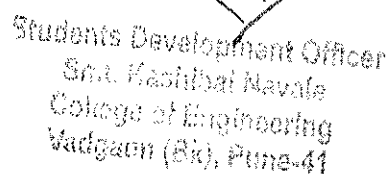 Students Development Officer
Smt. Kashibai Navale
College of Engineering
Vadgaon (Bk), Pune-41